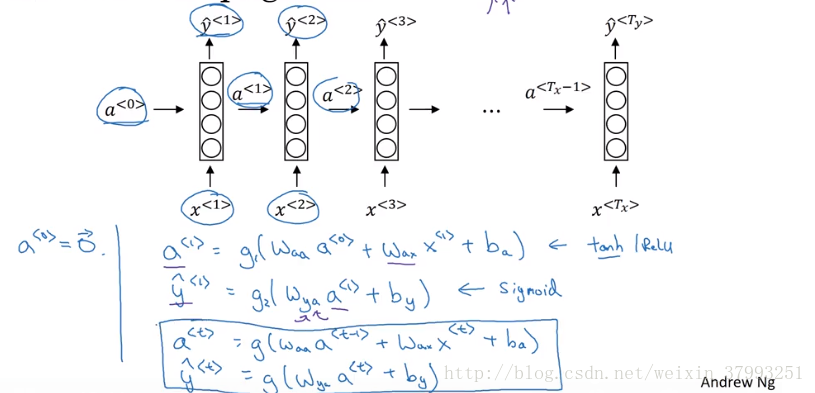 ŷ<1> ŷ<2> ŷ<3> ŷ<Ty>
a<0> a<1> a<2> ... a<Tx−1>
x<1> x<2> x<3> x<Tx>
a<0> = 0⃗.
a<1> = g₁(Waa a<0> + Wax x<1> + ba) ← tanh / Relu
ŷ<1> = g₂(Wya a<1> + by) ← sigmoid
a<t> = g(Waa a<t-1> + Wax x<t> + ba)
ŷ<t> = g(Wya a<t> + by)
http://blog.csdn.net/weixin_37993251
Andrew Ng